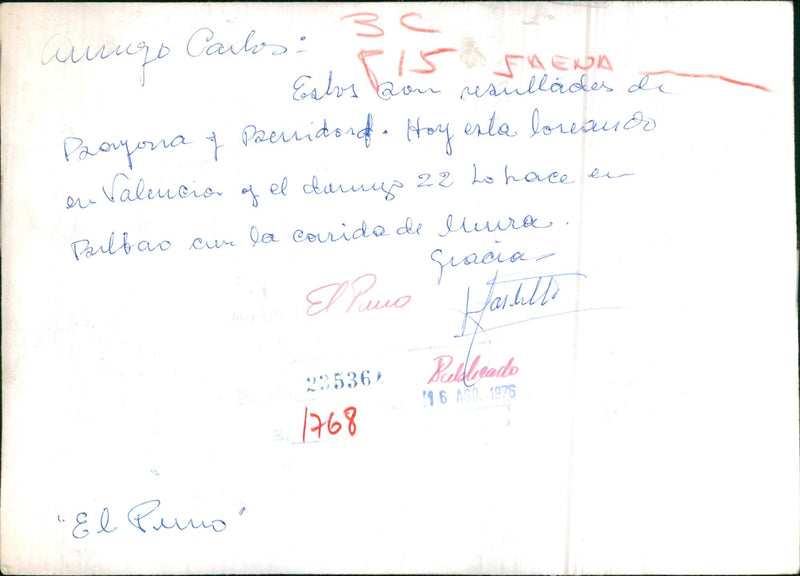 Amigo Carlos:
3C
F15 FAENA
Estos son resultados de
Bayona y Benidorf. Hoy esta toreando
en Valencia y el domingo 22 lo hace en
Bilbao con la corrida de Miura.
Gracias
El Puno
235361
Publicado
16 AGO. 1976
1768
"El Puno"